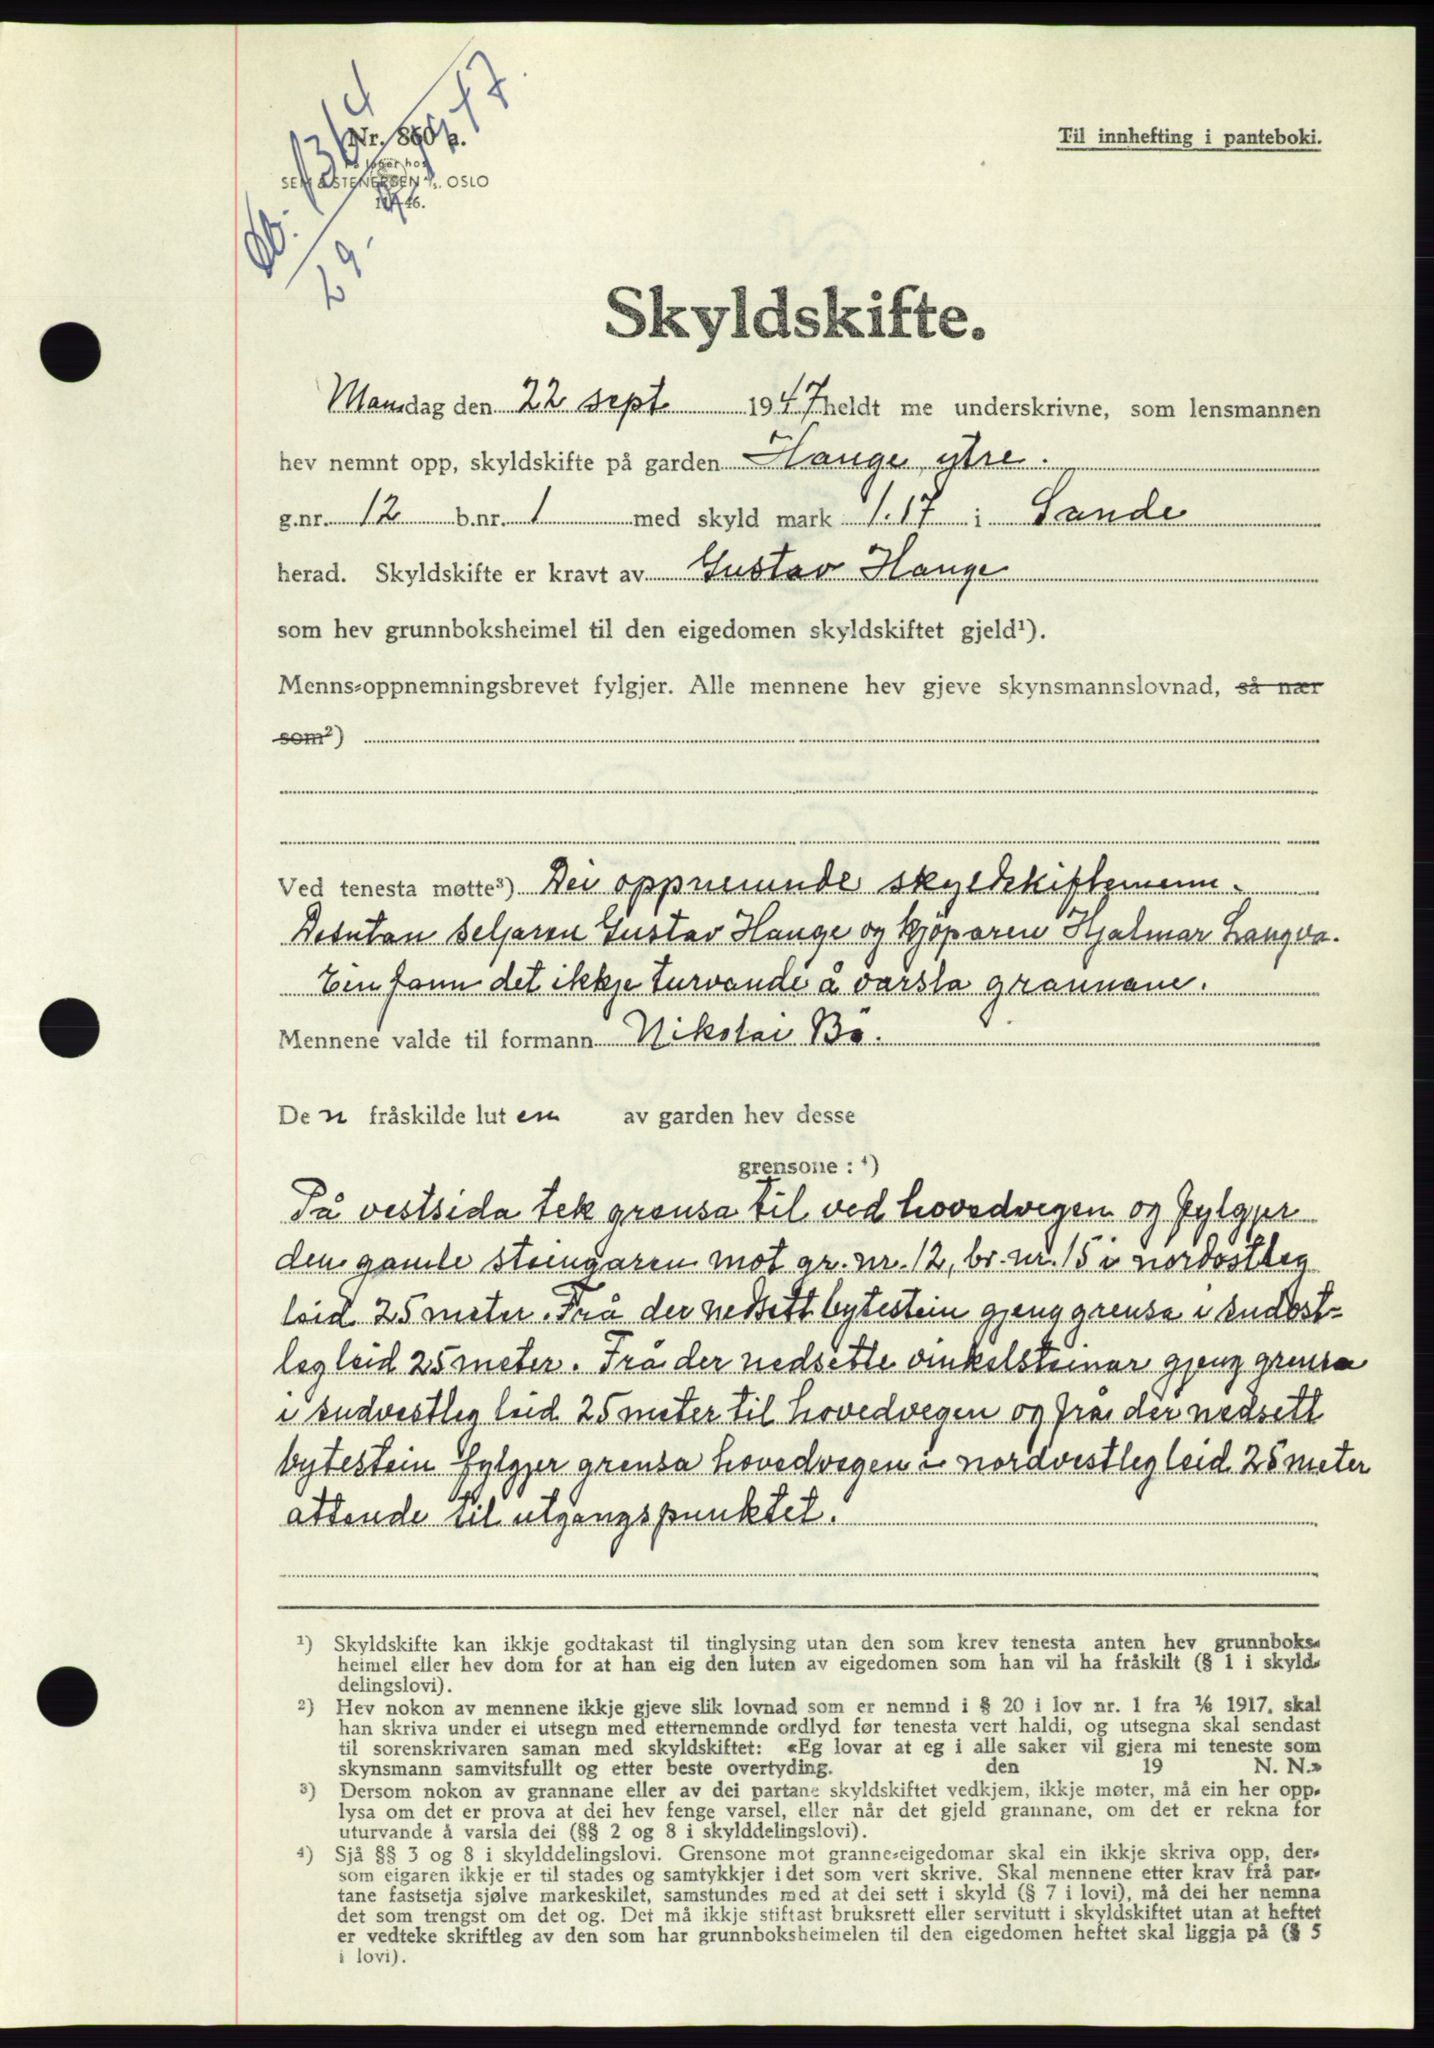 Db. 1364
29-9-1947.
Nr. 860 a.
På lager hos
SEM & STENERSEN A/S, OSLO
11-46.
Til innhefting i panteboki.
Skyldskifte.
Mandag den 22 sept 1947 heldt me underskrivne, som lensmannen
hev nemnt opp, skyldskifte på garden Hauge, ytre.
g.nr. 12 b.nr. 1 med skyld mark 1.17 i Sande
herad. Skyldskifte er kravt av Gustav Hauge
som hev grunnboksheimel til den eigedomen skyldskiftet gjeld¹).
Menns-oppnemningsbrevet fylgjer. Alle mennene hev gjeve skynsmannslovnad, så nær
som²)
Ved tenesta møtte³) Dei oppnemnde skyldskiftemenn.
Desutan seljaren Gustav Hauge og kjöparen Hjalmar Langva.
Ein fann det ikkje turvande å varsla grannane.
Mennene valde til formann Nikolai Bö.
Den fråskilde luten av garden hev desse
grensone : ⁴)
På vestsida tek grensa til ved hovedvegen og fylgjer
den gamle steingaren mot gr. nr. 12, br. nr. 15 i nordostleg
leid 25 meter. Frå der nedsett bytestein gjeng grensa i sudost-
leg leid 25 meter. Frå der nedsette vinkelsteinar gjeng grensa
i sudvestleg leid 25 meter til hovedvegen og frå der nedsett
bytestein fylgjer grensa hovedvegen i nordvestleg leid 25 meter
attende til utgangspunktet.
¹) Skyldskifte kan ikkje godtakast til tinglysing utan den som krev tenesta anten hev grunnboks-
heimel eller hev dom for at han eig den luten av eigedomen som han vil ha fråskilt (§ 1 i skyld-
delingslovi).
²) Hev nokon av mennene ikkje gjeve slik lovnad som er nemnd i § 20 i lov nr. 1 fra 1/6 1917, skal
han skriva under ei utsegn med etternemnde ordlyd før tenesta vert haldi, og utsegna skal sendast
til sorenskrivaren saman med skyldskiftet: «Eg lovar at eg i alle saker vil gjera mi teneste som
skynsmann samvitsfullt og etter beste overtyding. den 19 N. N.»
³) Dersom nokon av grannane eller av dei partane skyldskiftet vedkjem, ikkje møter, må ein her opp-
lysa om det er prova at dei hev fenge varsel, eller når det gjeld grannane, om det er rekna for
uturvande å varsla dei (§§ 2 og 8 i skylddelingslovi).
⁴) Sjå §§ 3 og 8 i skylddelingslovi. Grensone mot granne-eigedomar skal ein ikkje skriva opp, der-
som eigaren ikkje er til stades og samtykkjer i det som vert skrive. Skal mennene etter krav frå par-
tane fastsetja sjølve markeskilet, samstundes med at dei sett i skyld (§ 7 i lovi), må dei her nemna
det som trengst om det og. Det må ikkje stiftast bruksrett eller servitutt i skyldskiftet utan at heftet
er vedteke skriftleg av den som har grunnboksheimelen til den eigedomen heftet skal liggja på (§ 5
i lovi).